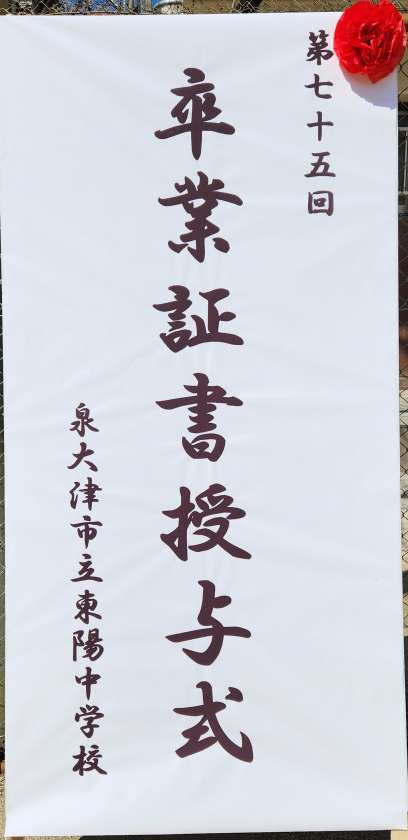 第七十五回
卒業証書授与式
泉大津市立東陽中学校